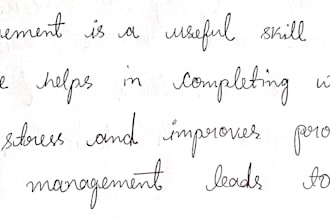 ement is a useful skill
e helps in completing w
stress and improves pro
management leads to